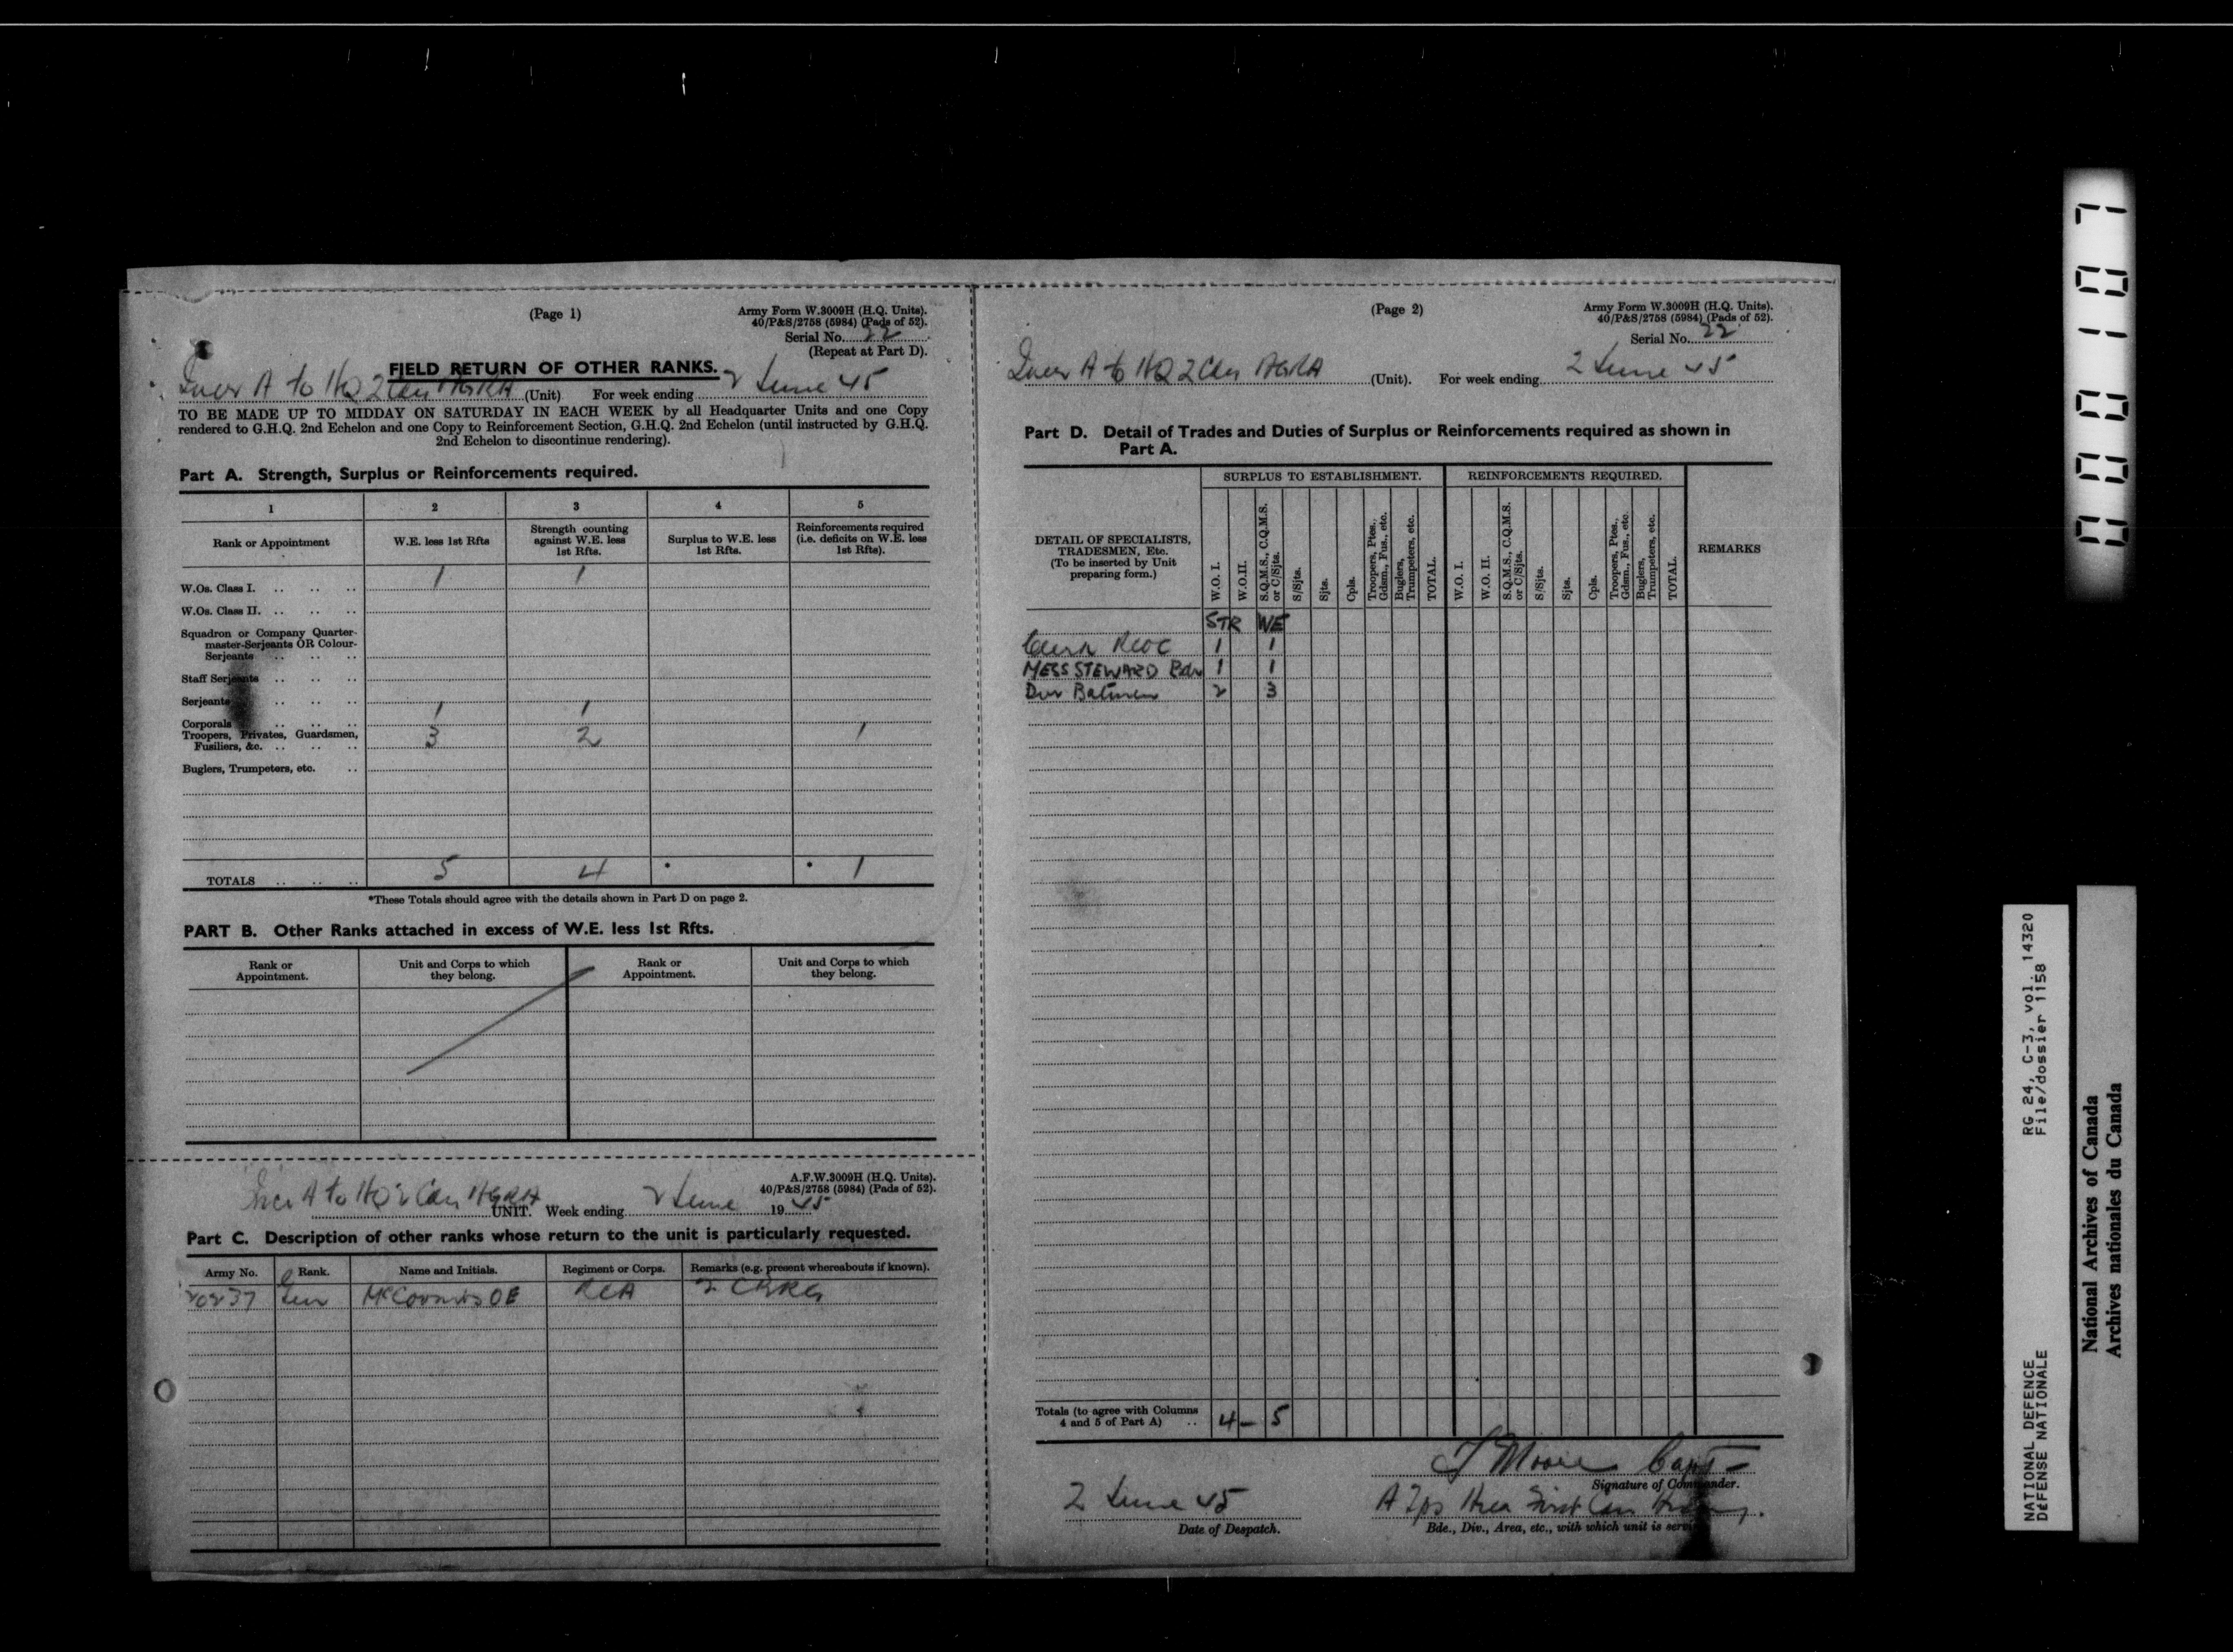 (Page 1)
Army Form W.3009H (H.Q. Units).
40/P&S/2758 (5984) (Pads of 52).
Serial No. 22
(Repeat at Part D).
FIELD RETURN OF OTHER RANKS.
Incr A to HQ 2 Cdn AGRA (Unit) For week ending 2 June 45
TO BE MADE UP TO MIDDAY ON SATURDAY IN EACH WEEK by all Headquarter Units and one Copy
rendered to G.H.Q. 2nd Echelon and one Copy to Reinforcement Section, G.H.Q. 2nd Echelon (until instructed by G.H.Q.
2nd Echelon to discontinue rendering).
Part A. Strength, Surplus or Reinforcements required.
1 2 3 4 5
Rank or Appointment
W.E. less 1st Rfts
Strength counting
against W.E. less
1st Rfts.
Surplus to W.E. less
1st Rfts.
Reinforcements required
(i.e. deficits on W.E. less
1st Rfts).
W.Os. Class I. .. .. .. 1 1
W.Os. Class II. .. .. ..
Squadron or Company Quarter-
master-Serjeants OR Colour-
Serjeants .. .. ..
Staff Serjeants .. .. ..
Serjeants .. .. ..
Corporals .. .. .. 1 1
Troopers, Privates, Guardsmen,
Fusiliers, &c. .. .. .. 3 2 1
Buglers, Trumpeters, etc. ..
TOTALS .. .. .. 5 4 * * 1
*These Totals should agree with the details shown in Part D on page 2.
PART B. Other Ranks attached in excess of W.E. less 1st Rfts.
Rank or
Appointment.
Unit and Corps to which
they belong.
Rank or
Appointment.
Unit and Corps to which
they belong.
A.F.W.3009H (H.Q. Units).
40/P&S/2758 (5984) (Pads of 52).
Incr A to HQ 2 Cdn AGRA UNIT. Week ending 2 June 1945
Part C. Description of other ranks whose return to the unit is particularly requested.
Army No. Rank. Name and Initials. Regiment or Corps. Remarks (e.g. present whereabouts if known).
RCA 2 CBRG
(Page 2)
Army Form W.3009H (H.Q. Units).
40/P&S/2758 (5984) (Pads of 52).
Serial No. 22
Incr A to HQ 2 Cdn AGRA (Unit). For week ending 2 June 45
Part D. Detail of Trades and Duties of Surplus or Reinforcements required as shown in
Part A.
SURPLUS TO ESTABLISHMENT. REINFORCEMENTS REQUIRED.
DETAIL OF SPECIALISTS,
TRADESMEN, Etc.
(To be inserted by Unit
preparing form.)
W.O. I.
W.O.II.
S.Q.M.S., C.Q.M.S.
or C/Sjts.
S/Sjts.
Sjts.
Cpls.
Troopers, Ptes.,
Gdsm., Fus., etc.
Buglers,
Trumpeters, etc.
TOTAL.
W.O. I.
W.O. II.
S.Q.M.S., C.Q.M.S.
or C/Sjts.
S/Sjts.
Sjts.
Cpls.
Troopers, Ptes.,
Gdsm., Fus., etc.
Buglers,
Trumpeters, etc.
TOTAL.
REMARKS
STR WE
1 1
MESS STEWARD Bdr 1 1
Dvr Batmen 2 3
Totals (to agree with Columns
4 and 5 of Part A) .. 4 - 5
Moore Capt
Signature of Commander.
2 June 45
Date of Despatch.
A Tps Area First Cdn Army.
Bde., Div., Area, etc., with which unit is serving
0001107
NATIONAL DEFENCE RG 24, C-3, vol. 14320
DÉFENSE NATIONALE File/dossier 1158
National Archives of Canada
Archives nationales du Canada